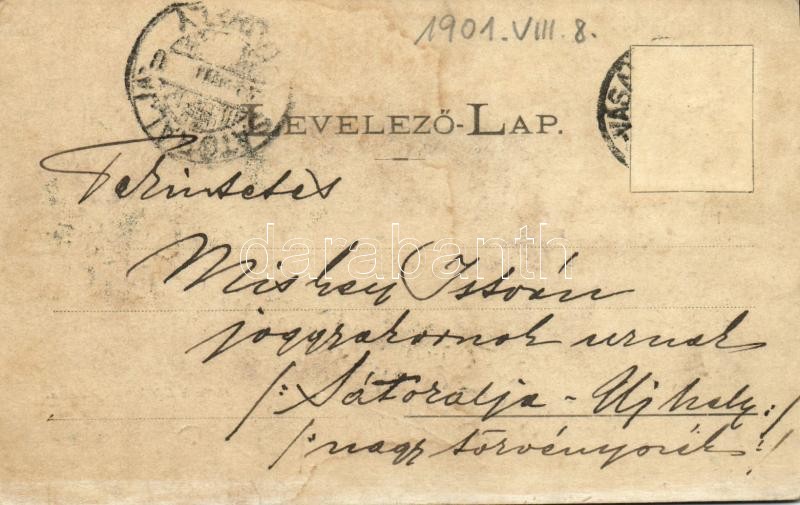 1901.VIII.8.
LEVELEZŐ-LAP.
Tekintetes
darabanth
István
joggyakornok urnak
/: Sátoralja-Ujhely :/
/: nagy törvényszék :/